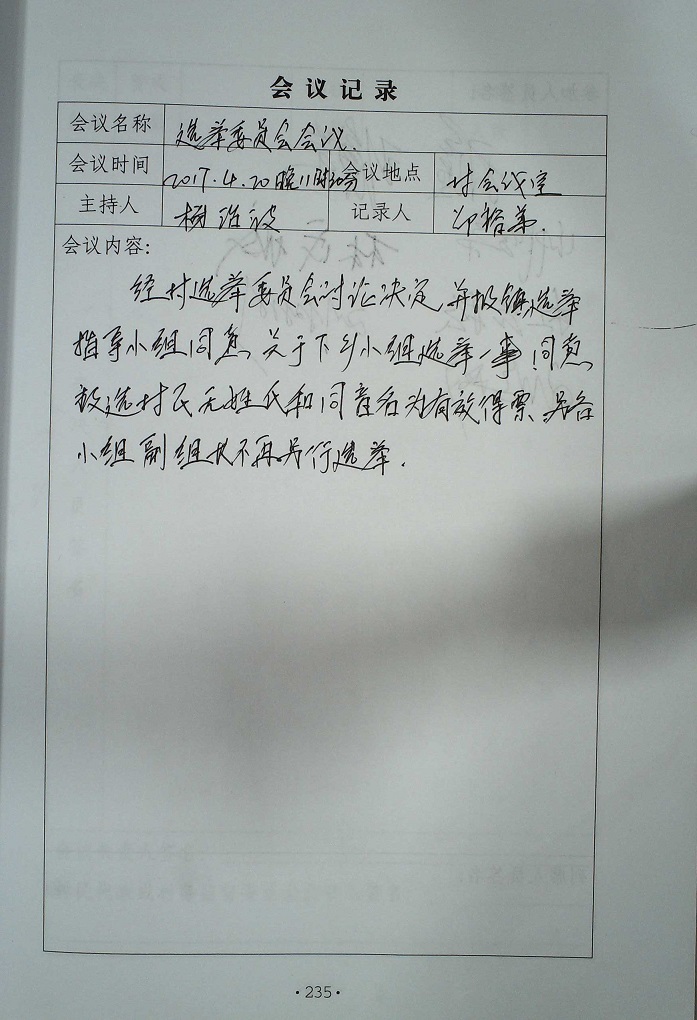 会议记录
会议名称 选举委员会会议.
会议时间 2017.4.20晚11时30分 会议地点 村会议室
主持人 记录人
会议内容:
经村选举委员会讨论决定,并报镇选举
指导小组同意,关于下乡小组选举一事,同意
被选村民无姓氏和同音名为有效得票,另各
小组副组长不再另行选举.
·235·